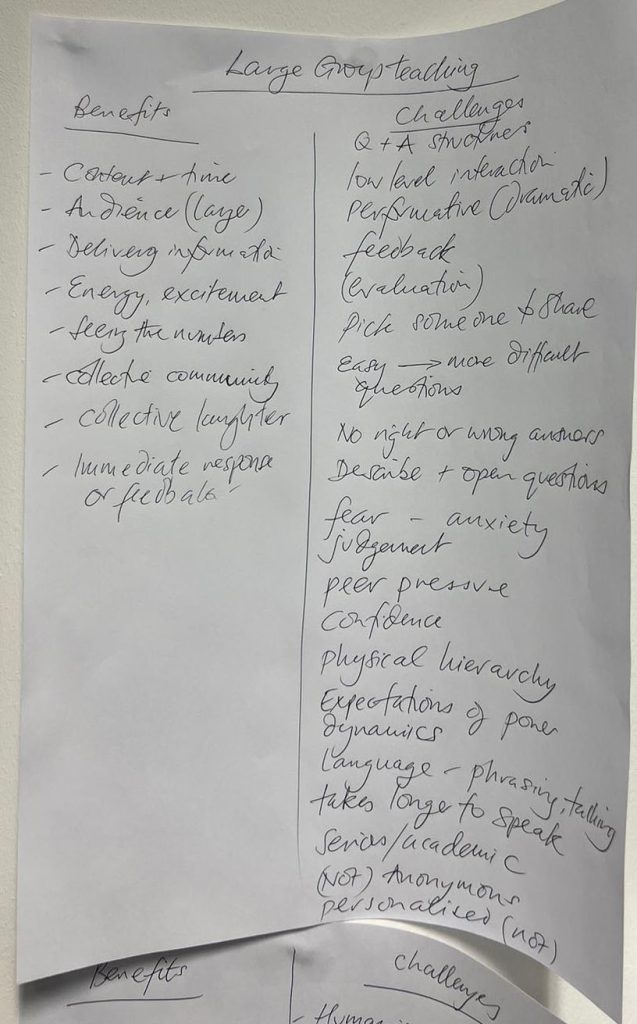 Large Group teaching
Benefits
- Content + time
- Audience (large)
- Delivering information
- Energy, excitement
- seeing the numbers
- collective community
- collective laughter
- Immediate response
or feedback
Challenges
Q + A structures
low level interaction
performative (dramatic)
feedback
(evaluation)
Pick someone to share
Easy → more difficult
questions
No right or wrong answers
Describe + open questions
fear - anxiety
judgement
peer pressure
confidence
physical hierarchy
Expectations of power
dynamics
Language - phrasing, talking
takes longer to speak
serious/academic
(Not) Anonymous
personalised (not)
Benefits
challenges